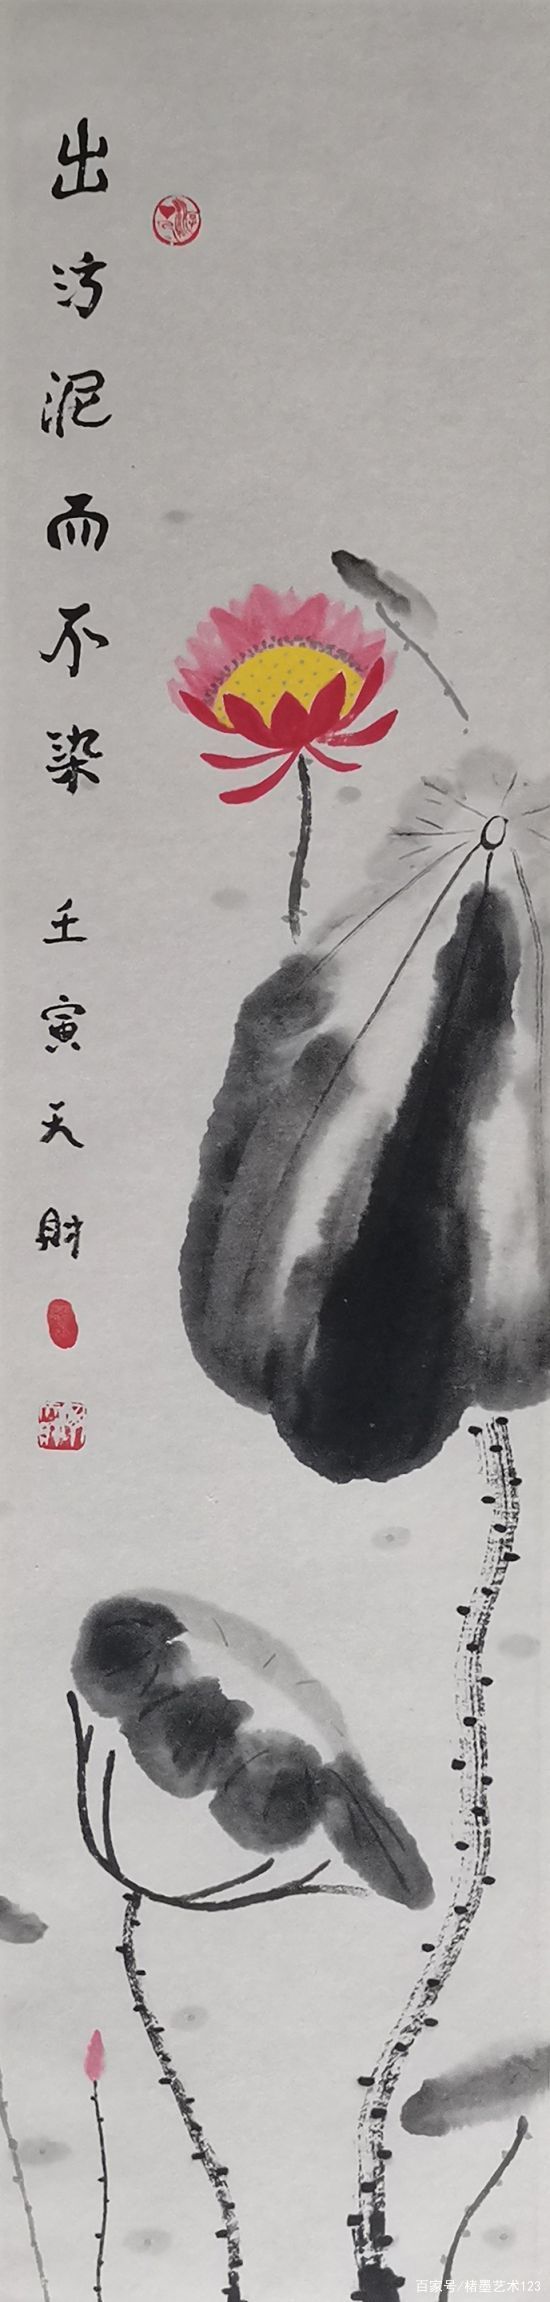 出污泥而不染 壬寅天财
百家号/楮墨艺术123